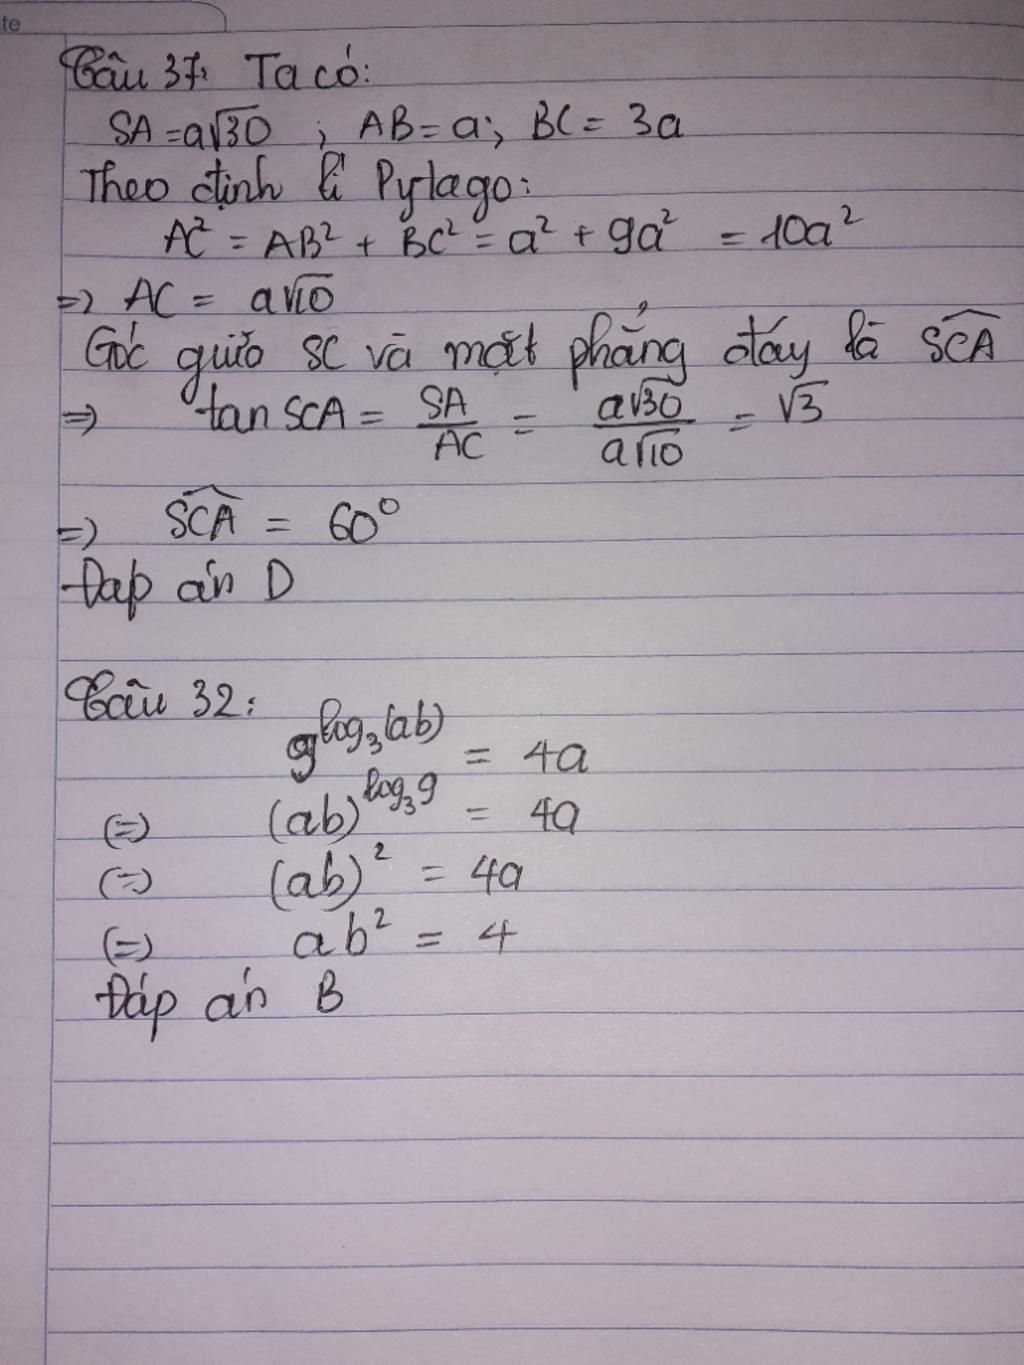 te
Câu 37: Ta có:
SA = a√30 ; AB = a; BC = 3a
Theo định lí Pytago:
AC² = AB² + BC² = a² + 9a² = 10a²
=> AC = a√10
Góc giữa SC và mặt phẳng đáy là \widehat{SCA}
=> tan SCA = SA/AC = a√30/a√10 = √3
=> \widehat{SCA} = 60°
Đáp án D
Câu 32:
9^{log₃(ab)} = 4a
(=) (ab)^{log₃9} = 4a
(=) (ab)² = 4a
(=) ab² = 4
Đáp án B